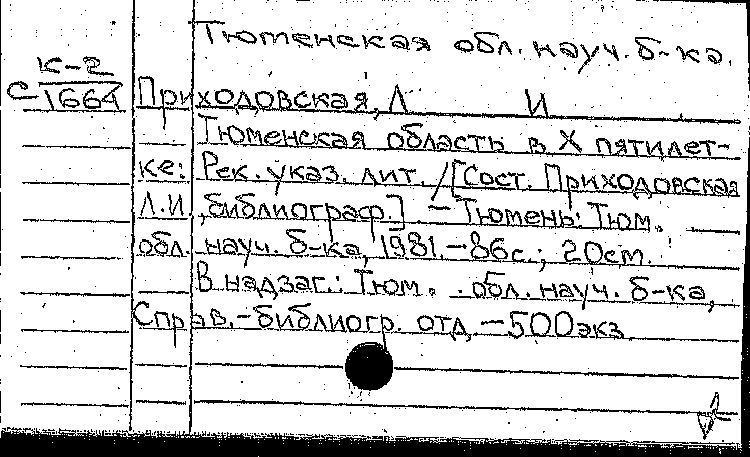 Тюменская обл. науч. б-ка.
К-2
С-1664
Приходовская, Л И
Тюменская область в X пятилет-
ке: Рек. указ. лит. /[Сост. Приходовская
Л.И., библиограф.]. - Тюмень: Тюм.
обл. науч. б-ка, 1981. - 86с.; 20см.
В надзаг.: Тюм. обл. науч. б-ка,
Справ.-библиогр. отд. - 500экз